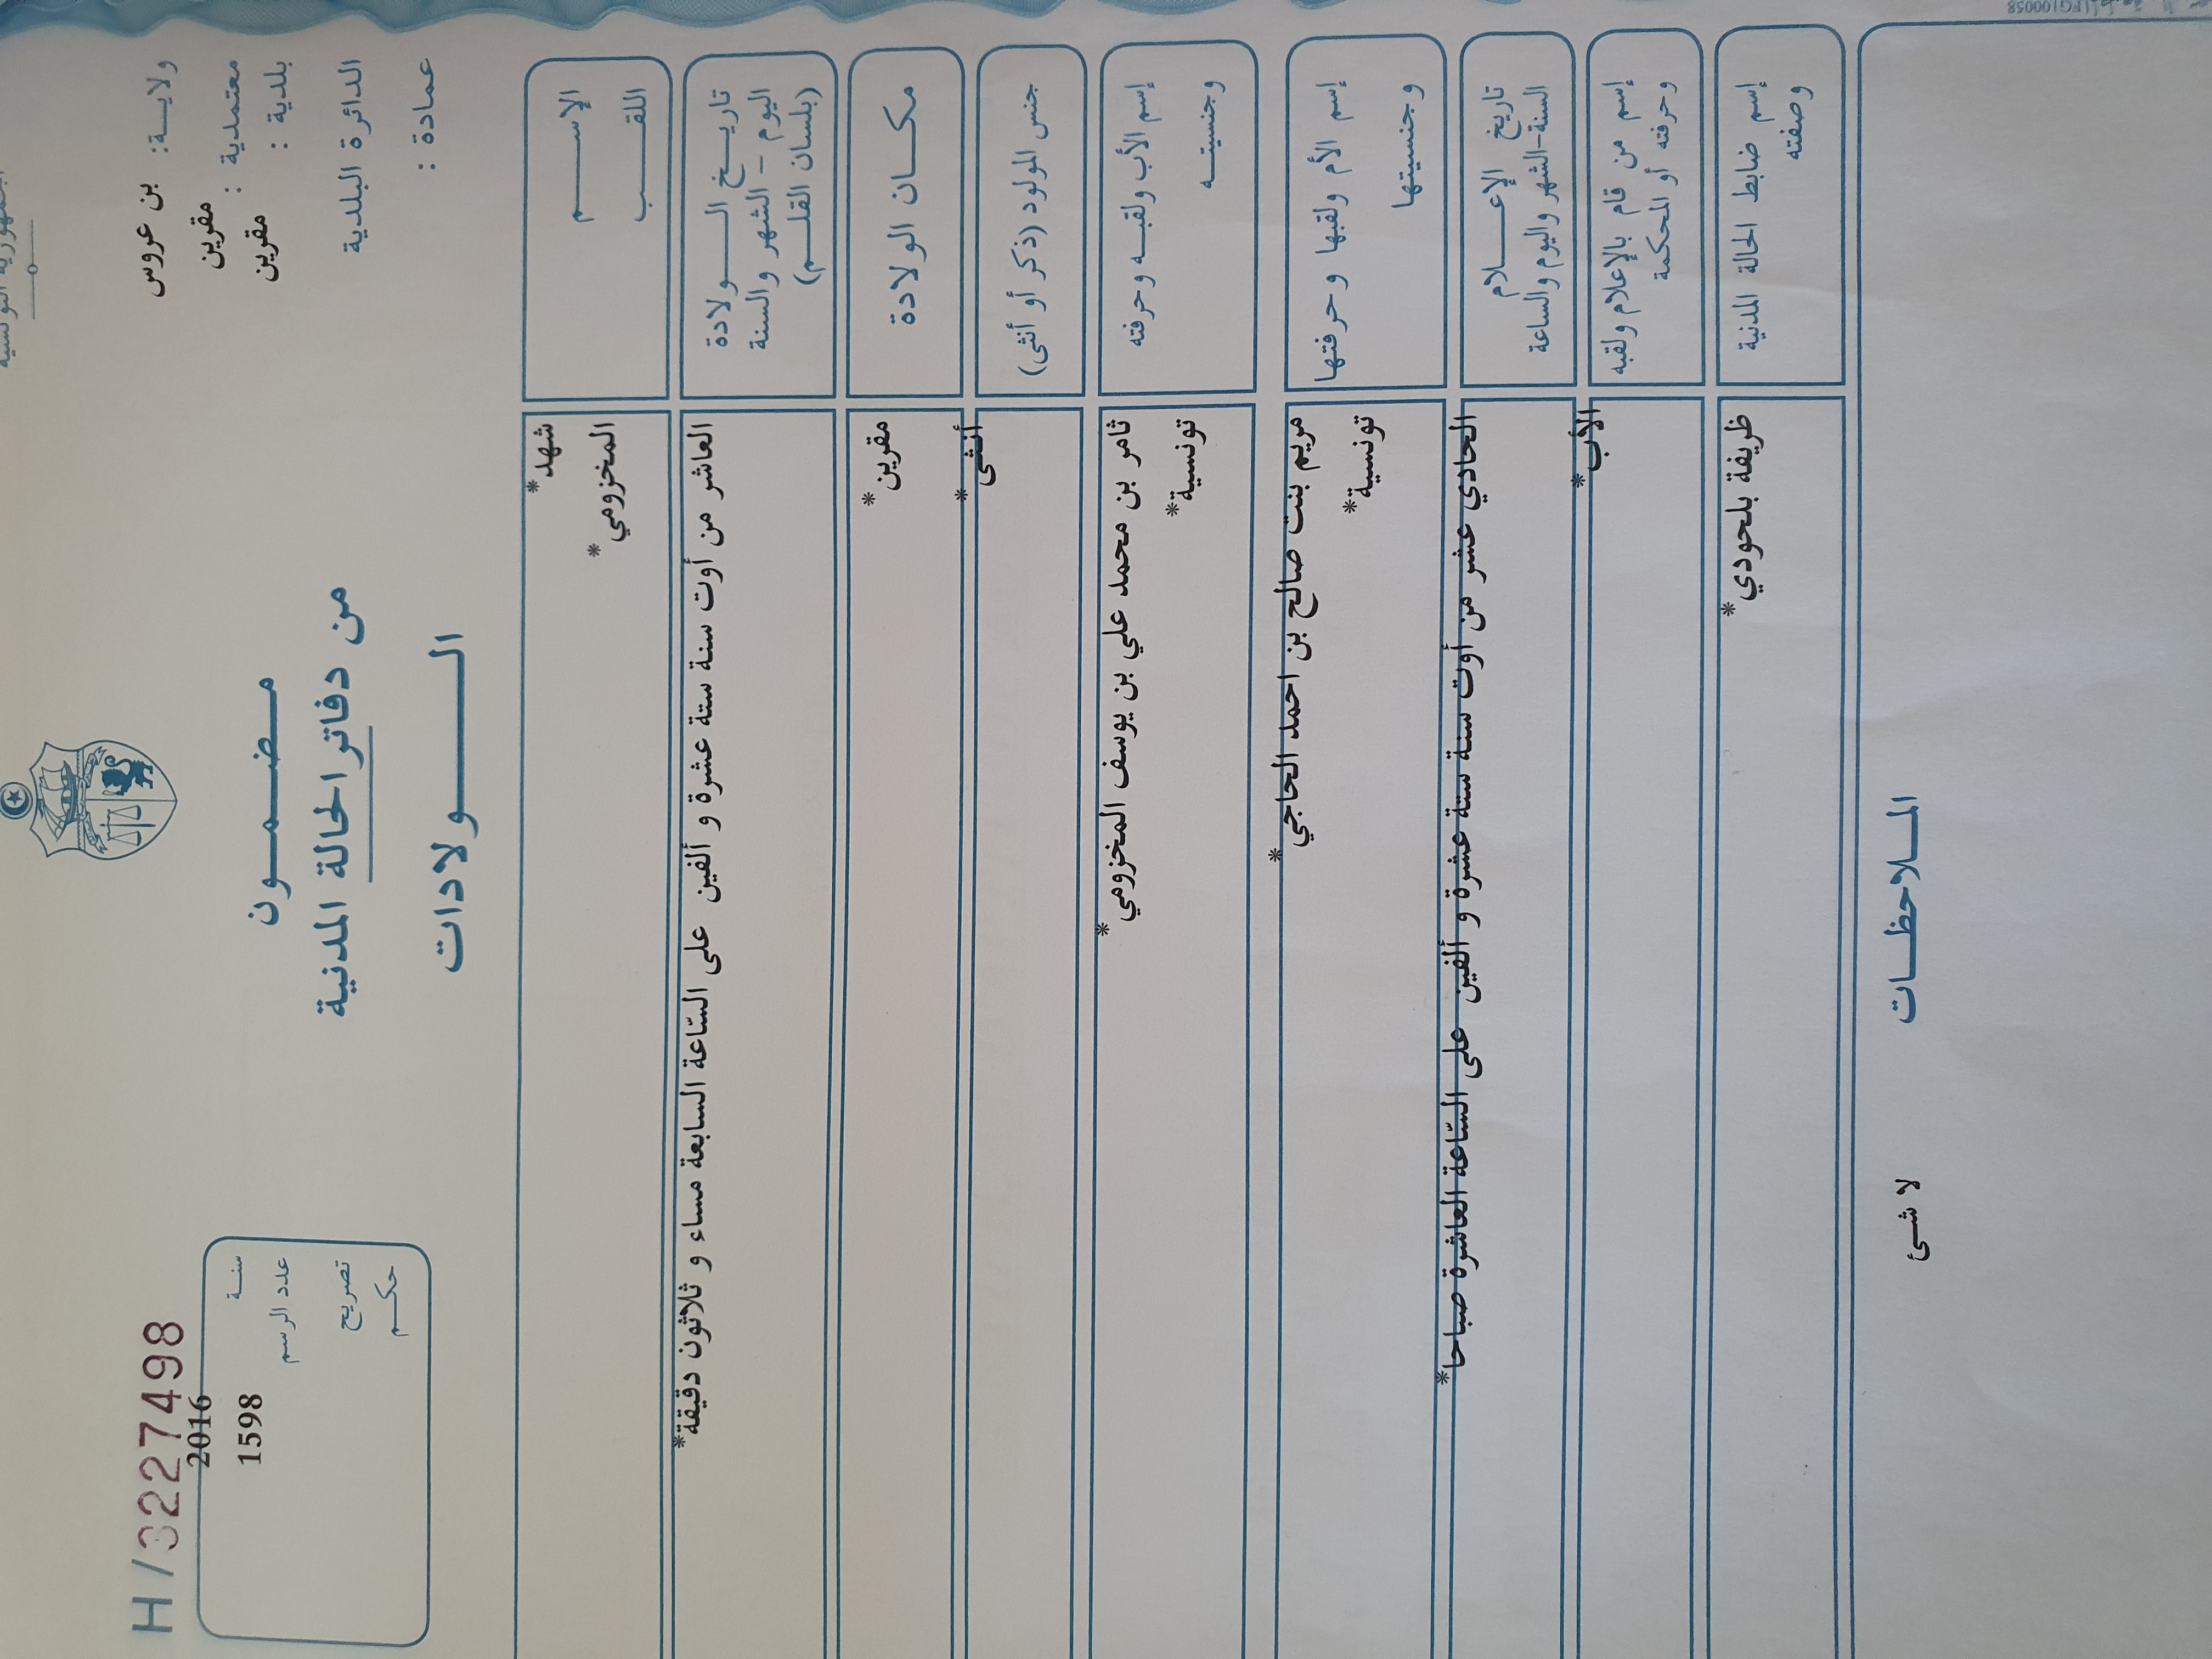 الجمهورية التونسية
ولايـة: بن عروس
معتمدية : مقرين
بلدية : مقرين
الدائرة البلدية
عمادة :
مضمون
من دفاتر الحالة المدنية
الولادات
H/3227498
سنة 2016
عدد الرسم 1598
تصريح
حكم
الإسم شهد*
اللقب المخزومي*
تاريخ الولادة
اليوم - الشهر والسنة
(بلسان القلم)
العاشر من أوت سنة ستة عشرة و ألفين على السّاعة السابعة مساء و ثلاثون دقيقة*
مكان الولادة مقرين*
جنس المولود (ذكر أو أنثى) أنثى*
إسم الأب ولقبه وحرفته ثامر بن محمد علي بن يوسف المخزومي*
وجنسيته تونسية*
إسم الأم ولقبها وحرفتها مريم بنت صالح بن احمد الحاجي*
وجنسيتها تونسية*
تاريخ الإعلام
السنة-الشهر واليوم والساعة
الحادي عشر من أوت سنة ستة عشرة و ألفين على السّاعة العاشرة صباحا*
إسم من قام بالإعلام ولقبه
وحرفته أو المحكمة
الأب*
إسم ضابط الحالة المدنية
وصفته
ظريفة بلحودي*
الملاحظات
لا شئ